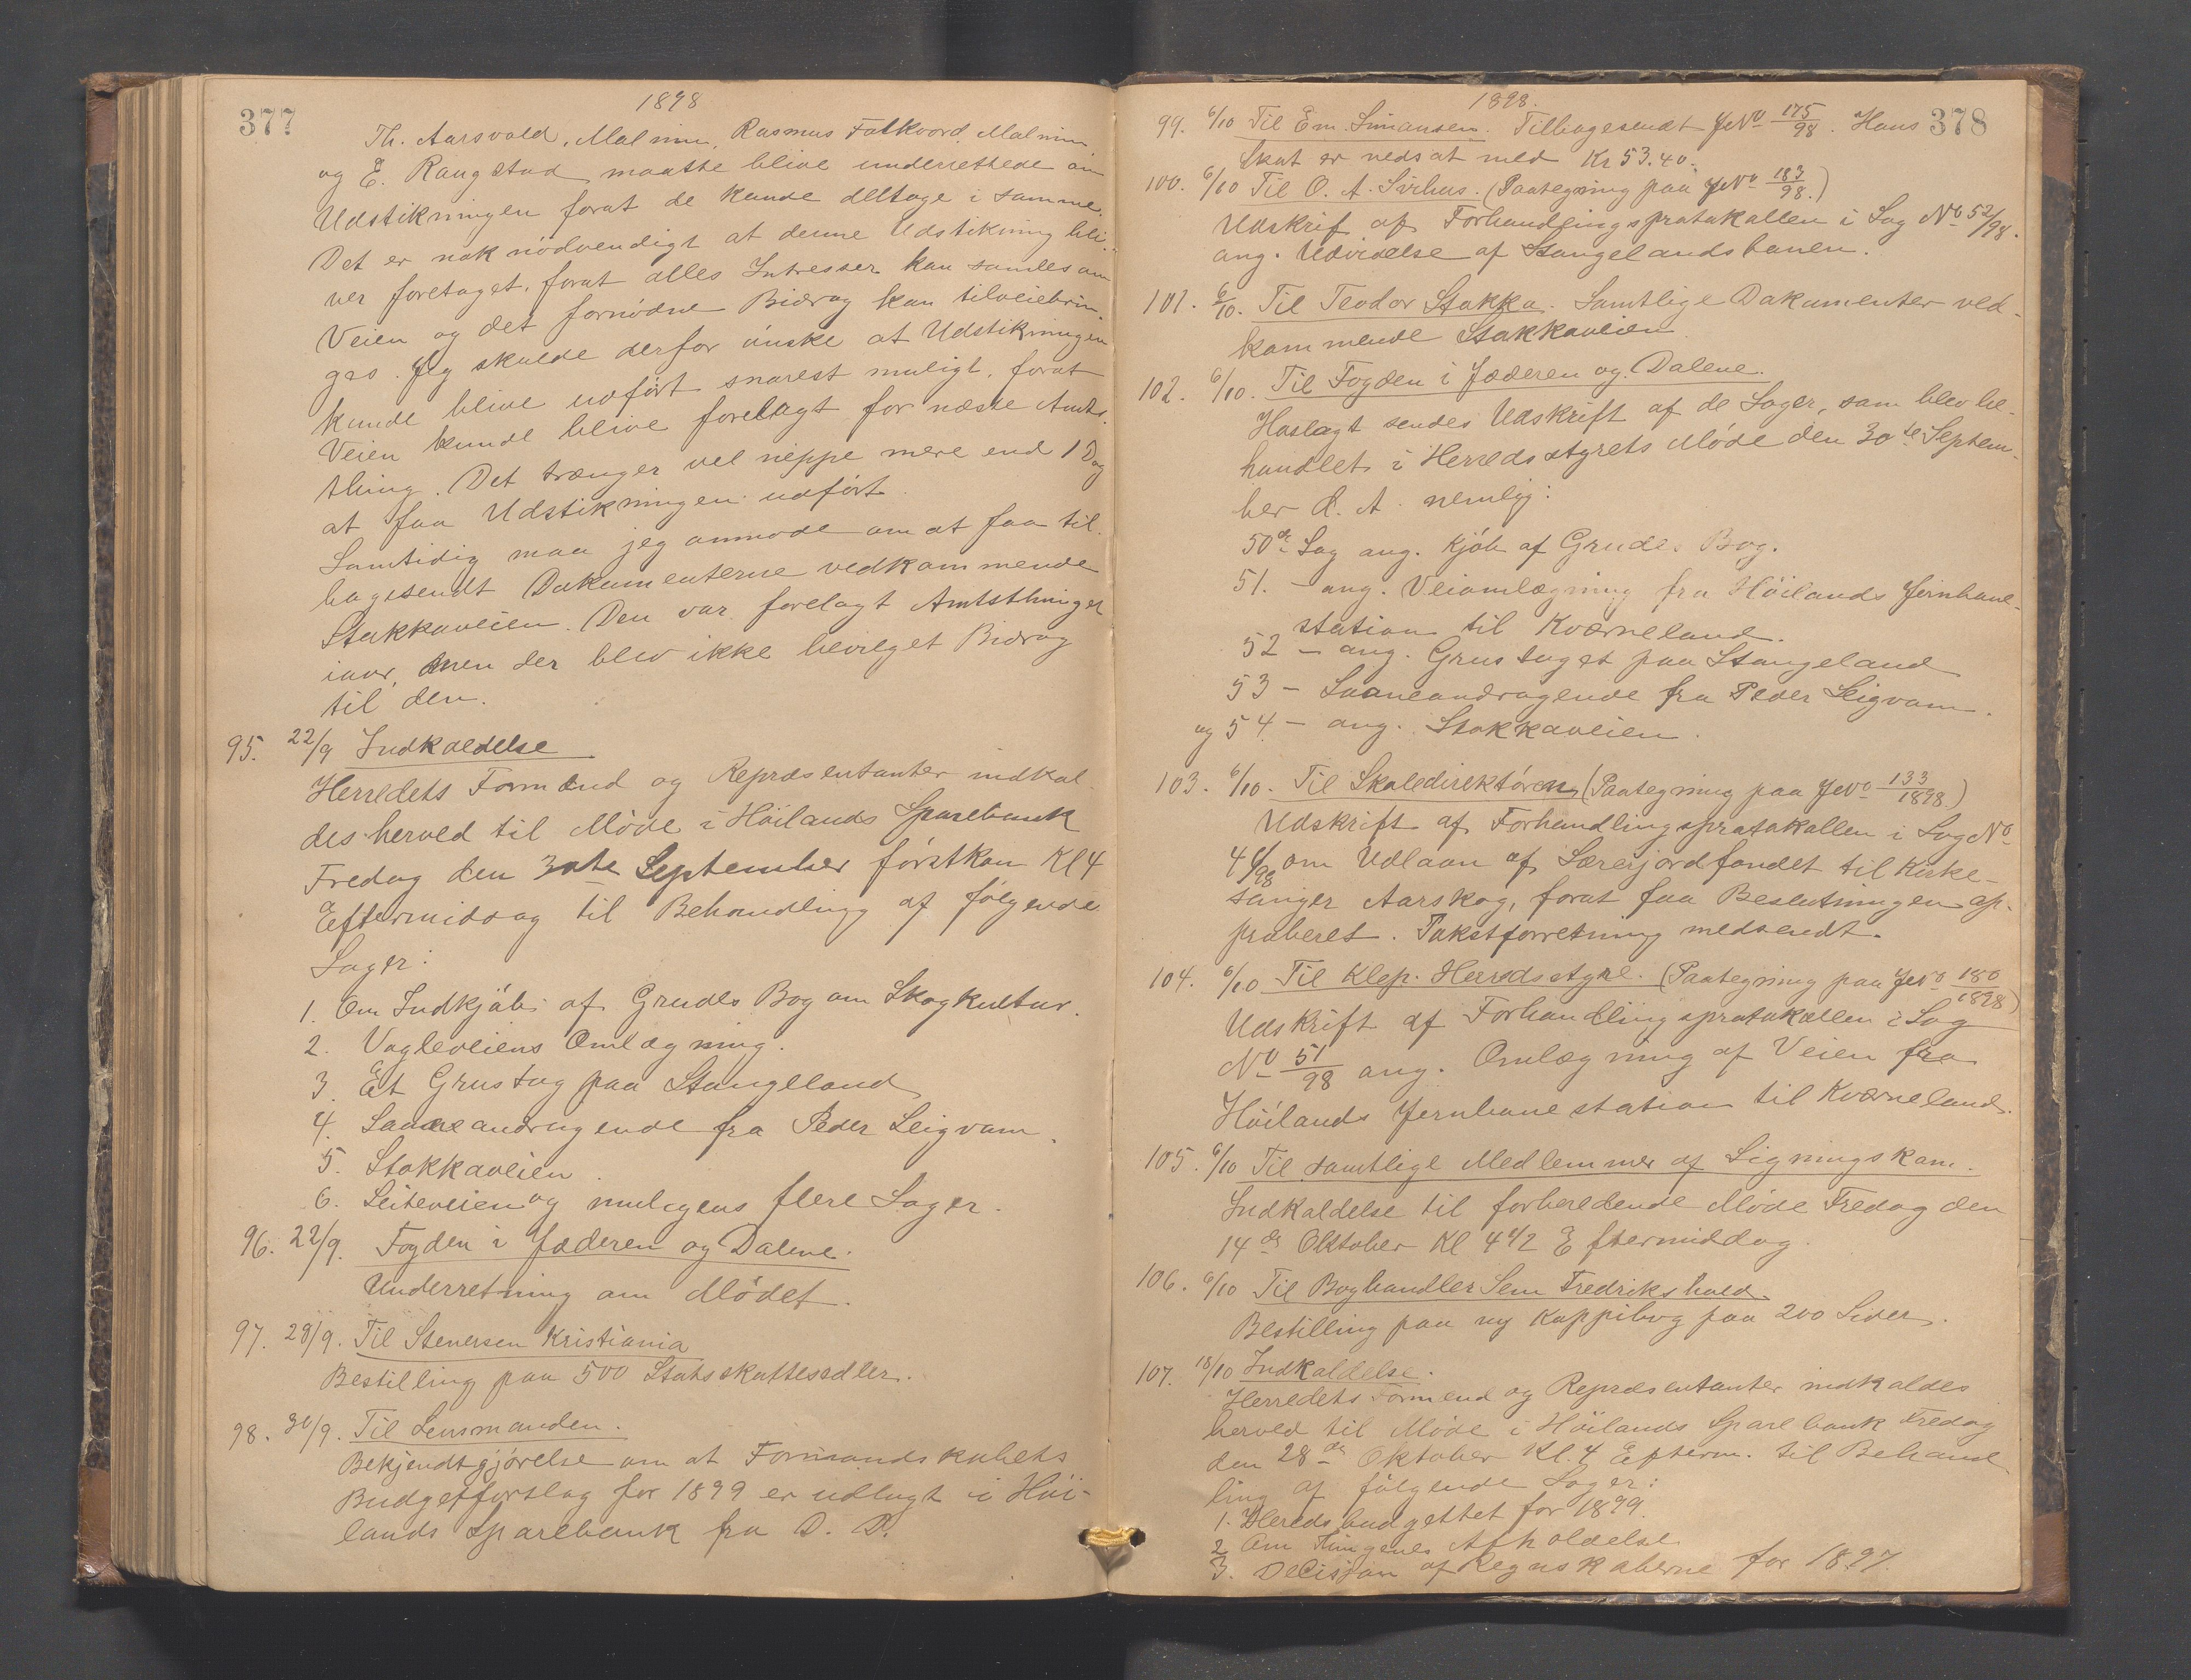 377
1898
Th. Aarsvold, Malmin, Rasmus Folkvord, Malmin,
og E. Raugstad maatte blive underrettede om
Udstikningen forat de kunde deltage i samme.
Det er nok nødvendigt at denne Udstikning bli-
ver foretaget, forat alles Intresser kan samles om
Veien og det fornødne Bidrag kan tilveiebrin-
ges. Jeg skulde derfor ønske at Udstikningen
kunde blive udført snarest muligt, forat
Veien kunde blive forelagt for næste Amts-
thing. Det trænger vel neppe mere end 1 Dag
at faa Udstikningen udført.
Samtidig maa jeg anmode om at faa til-
bagesendt Dokumenterne vedkommende
Stokkaveien. Den var forelagt Amtsthinget
iaar, men der blev ikke bevilget Bidrag
til den.
95. 22/9 Indkaldelse
Herredets Formænd og Repræsentanter indkal-
des herved til Møde i Høilands Sparebank
Fredag den 30te September førstkom Kl 4
Eftermiddag til Behandling af følgende
Sager:
1. Om Indkjøb af Grudes Bog om Skogkultur.
2. Vagleveiens Omlægning.
3. Et Grustag paa Stangeland
4. Laaneandragende fra Peder Leigvam.
5. Stokkaveien.
6. Leiteveien og muligens flere Sager.
96. 22/9. Fogden i Jæderen og Dalene.
Underretning om Mødet.
97. 28/9. Til Stenersen Kristiania
Bestilling paa 500 Statsskattesedler.
98. 30/9. Til Lensmanden.
Bekjendtgjørelse om at Formandskabets
Budgetforslag for 1899 er udlagt i Høi-
lands Sparebank fra D. D.
1898.
378
99. 6/10 Til Em. Simonsen. Tilbagesendt JNo 175/98. Hans
Skat er nedsat med Kr 53.40.
100. 6/10 Til O. A. Svihus. (Paategning paa JNo 183/98.)
Udskrif af Forhandlingsprotokollen i Sag No 52/98.
ang. Udvidelse af Stangelandsbanen.
101. 6/10. Til Teodor Stokka. Samtlige Dokumenter ved-
kommende Stokkaveien
102. 6/10. Til Fogden i Jæderen og Dalene.
Hoslagt sendes Udskrift af de Sager, som blev be-
handlet i Herredsstyrets Møde den 30te Septem-
ber d. A. nemlig:
50de Sag ang. Kjøb af Grudes Bog.
51. - ang. Veiomlægning fra Høilands Jernbane-
station til Kværneland.
52 - ang. Grustaget paa Stangeland
53 - Laaneandragende fra Peder Leigvam.
og 54 - ang. Stokkaveien.
103. 6/10. Til Skoledirektøren (Paategning paa JNo 133/1898)
Udskrift af Forhandlingsprotokollen i Sag No
46/98 om Udlaan af Lærerjordfondet til Kirke-
sanger Aarskog, forat faa Beslutningen ap-
proberet. Takstforretning medsendt.
104. 6/10 Til Klep Herredsstyre. (Paategning paa JNo 180/1898)
Udskrift af Forhandlingsprotokollen i Sag
No 51/98 ang. Omlægning af Veien fra
Høilands Jernbanestation til Kværneland.
105. 6/10 Til samtlige Medlemmer af Ligningskom.
Indkaldelse til forberedende Møde Fredag den
14de Oktober Kl 4 1/2 Eftermiddag.
106. 6/10 Til Boghandler Sem Fredrikshald.
Bestilling paa ny Koppibog paa 200 Sider.
107. 18/10 Indkaldelse.
Herredets Formend og Repræsentanter indkaldes
herved til Møde i Høilands Sparebank Fredag
den 28de Oktober Kl. 4 Efterm. til Behand-
ling af følgende Sager:
1. Heredsbudgettet for 1899.
2. Om Thingenes Afholdelse
3. Decision af Regnskaberne for 1897.